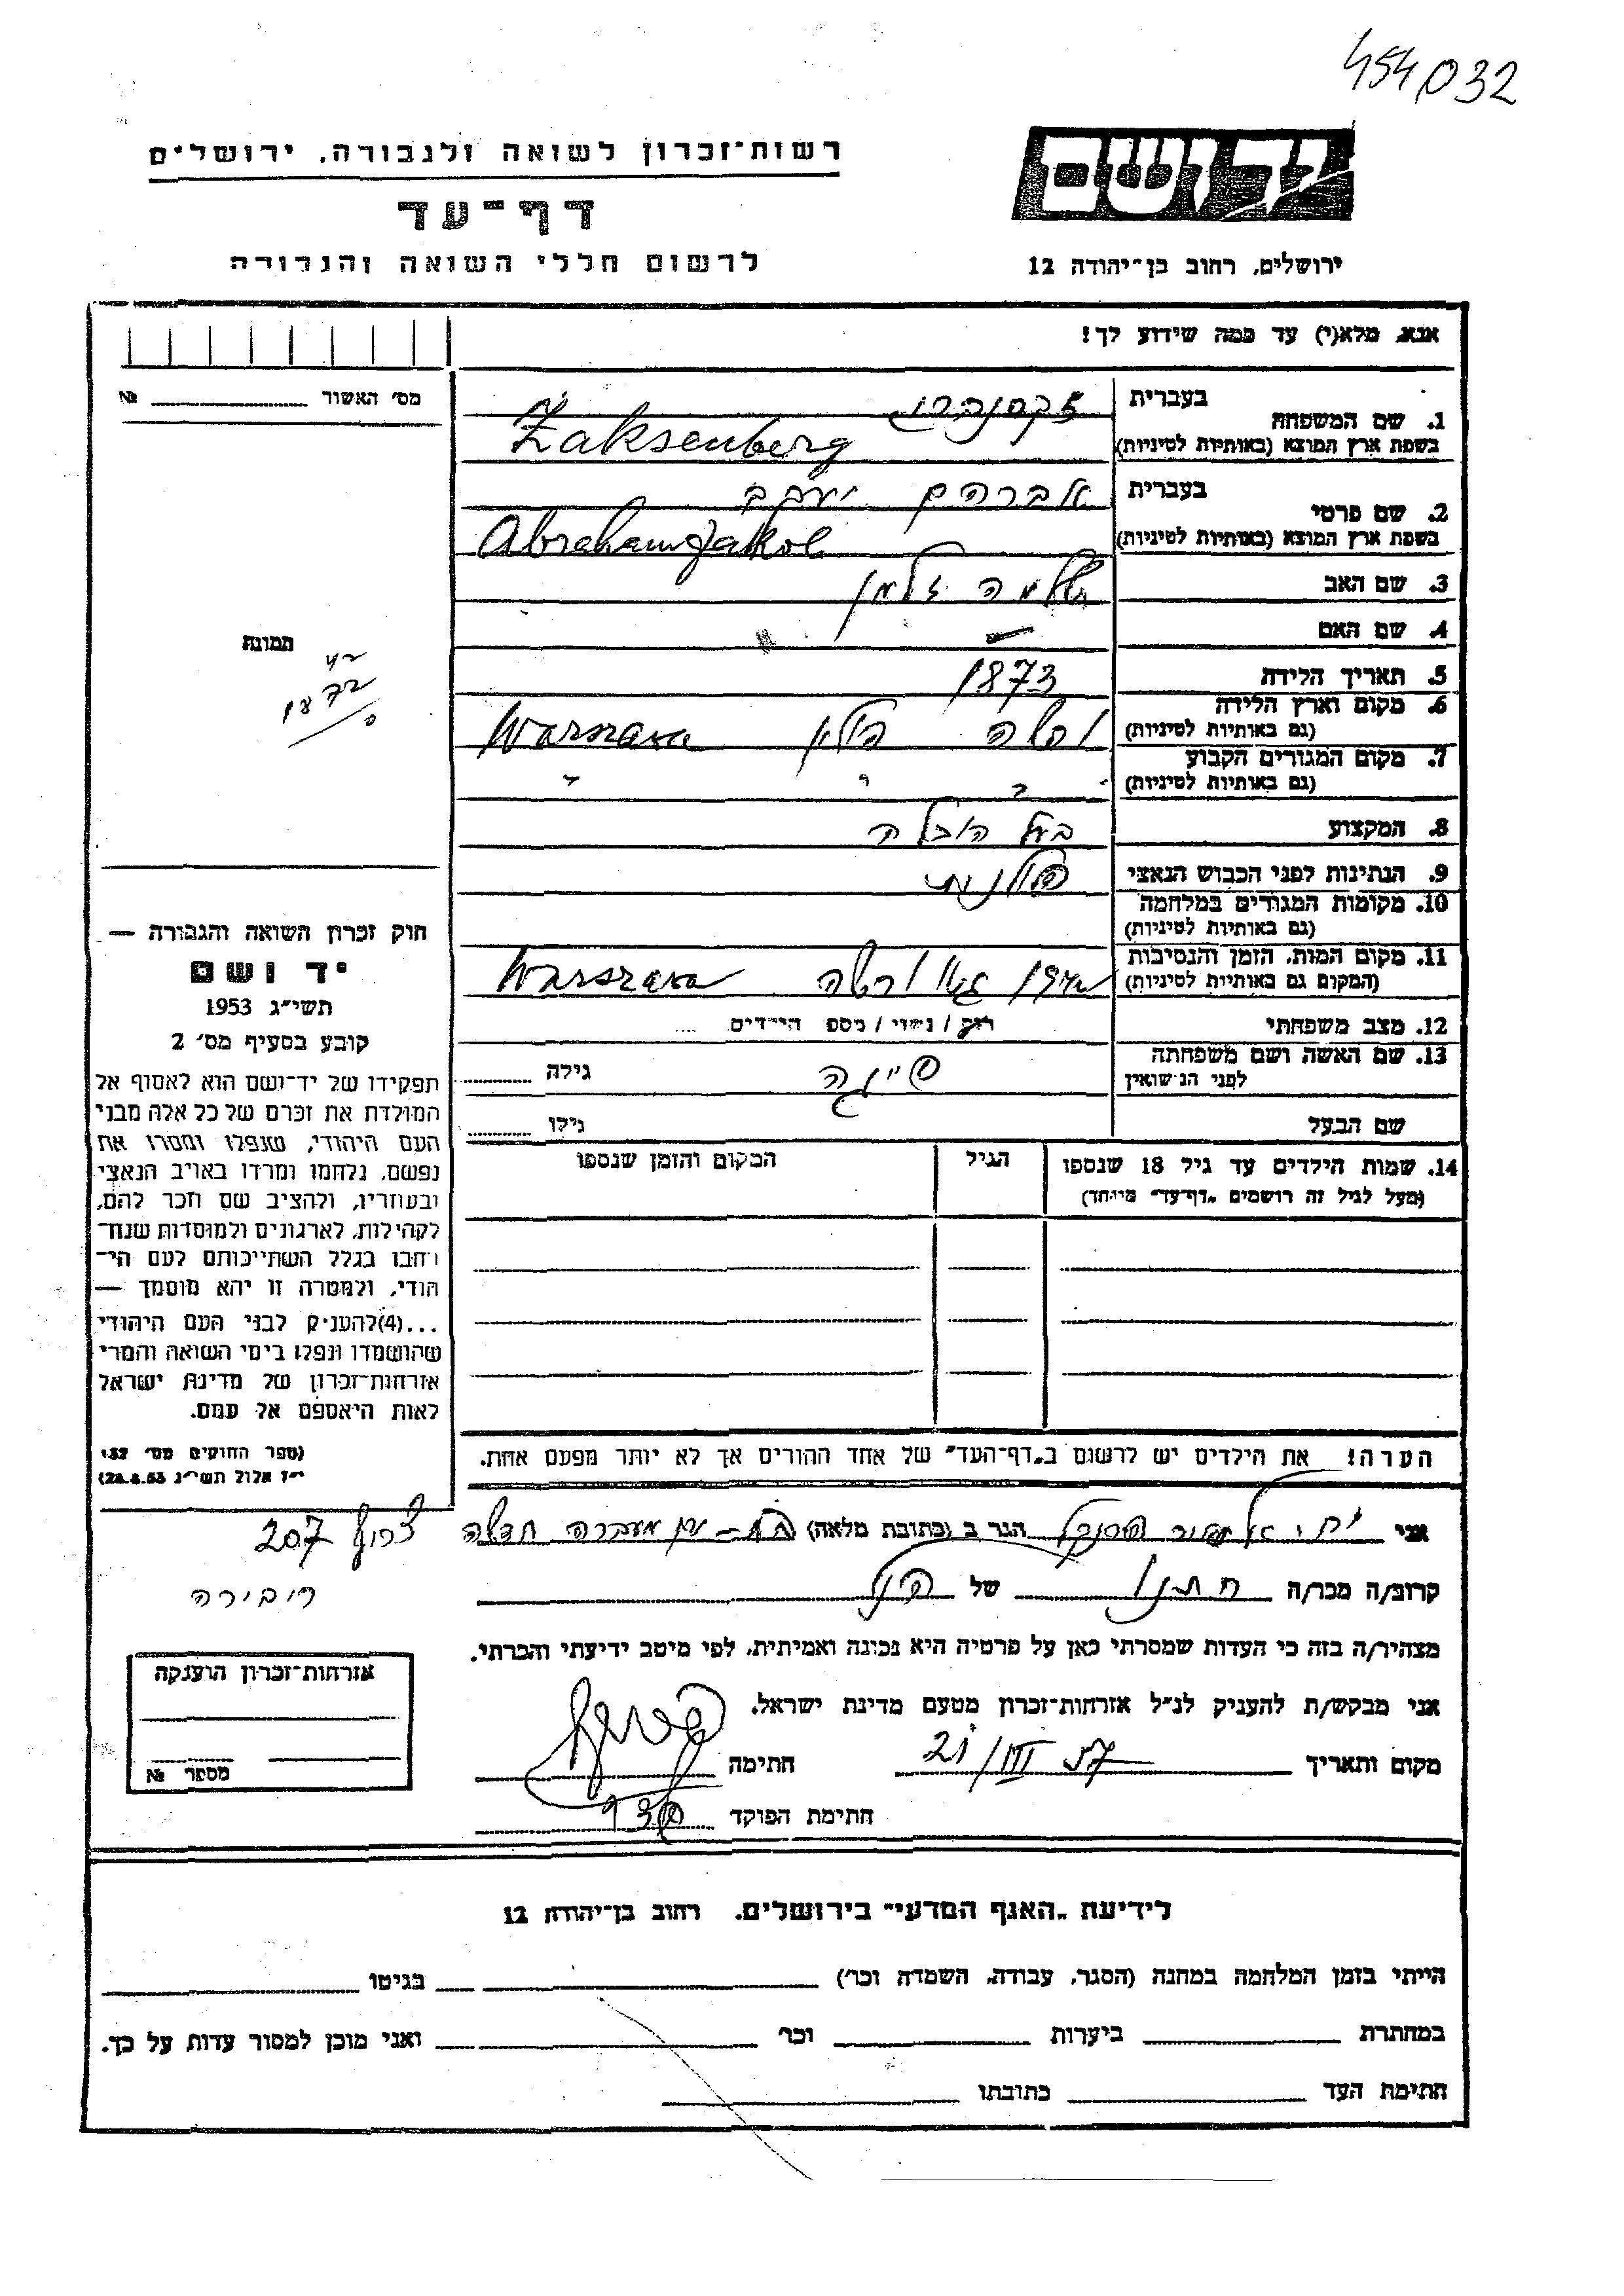 454032
יד ושם
רשות־זכרון לשואה ולגבורה, ירושלים
דף־עד
ירושלים, רחוב בן־יהודה 12
לרשום חללי השואה והגבורה
אנא, מלא(י) עד כמה שידוע לך!
מס׳ האשור №
1. שם המשפחה
בעברית זקסנברג
בשפת ארץ המוצא (באותיות לטיניות) Żaksenberg
2. שם פרטי
בעברית אברהם יעקב
בשפת ארץ המוצא (באותיות לטיניות) Abraham Jakob
3. שם האב שלמה זלמן
4. שם האם —
5. תאריך הלידה 1873
6. מקום וארץ הלידה
(גם באותיות לטיניות) ורשה פולין Warszawa
7. מקום המגורים הקבוע
(גם באותיות לטיניות) " " "
8. המקצוע בעל הובלה
9. הנתינות לפני הכבוש הנאצי פולנית
10. מקומות המגורים במלחמה
(גם באותיות לטיניות)
11. מקום המות, הזמן והנסיבות
(המקום גם באותיות לטיניות) גטו ורשה Warszawa
12. מצב משפחתי רוק / נשוי / מספר הילדים ....
13. שם האשה ושם משפחתה
לפני הנישואין גילה
שם הבעל גילו
14. שמות הילדים עד גיל 18 שנספו
(מעל לגיל זה רושמים „דף־עד" מיוחד)
הגיל
המקום והזמן שנספו
הערה! את הילדים יש לרשום ב„דף־העד" של אחד ההורים אך לא יותר מפעם אחת.
תמונה
1872
חוק זכרון השואה והגבורה —
יד ושם
תשי״ג 1953
קובע בסעיף מס׳ 2
תפקידו של יד־ושם הוא לאסוף אל
המולדת את זכרם של כל אלה מבני
העם היהודי, שנפלו ומסרו את
נפשם, נלחמו ומרדו באויב הנאצי
ובעוזריו, ולהציב שם וזכר להם,
לקהילות, לארגונים ולמוסדות שנח־
רבו בגלל השתייכותם לעם הי־
הודי, ולמטרה זו יהא מוסמך —
...(4)להעניק לבני העם היהודי
שהושמדו ונפלו בימי השואה והמרי
אזרחות־זכרון של מדינת ישראל
לאות היאספם אל עמם.
(ספר החוקים מס׳ 132
י״ז אלול תשי״ג 28.8.53)
אני הגר ב (כתובת מלאה) מעברה חדשה צריף 207
קרוב/ה מכר/ה חתנו של הנ״ל
מצהיר/ה בזה כי העדות שמסרתי כאן על פרטיה היא נכונה ואמיתית, לפי מיטב ידיעתי והכרתי.
אני מבקש/ת להעניק לנ״ל אזרחות־זכרון מטעם מדינת ישראל.
מקום ותאריך 21/III 57 חתימה
חתימת הפוקד
אזרחות־זכרון הוענקה
מספר №
לידיעת „האגף המדעי" בירושלים, רחוב בן־יהודה 12
הייתי בזמן המלחמה במחנה (הסגר, עבודה, השמדה וכו׳) בגיטו
במחתרת ביערות וכו׳ ואני מוכן למסור עדות על כך.
חתימת העד כתובתו